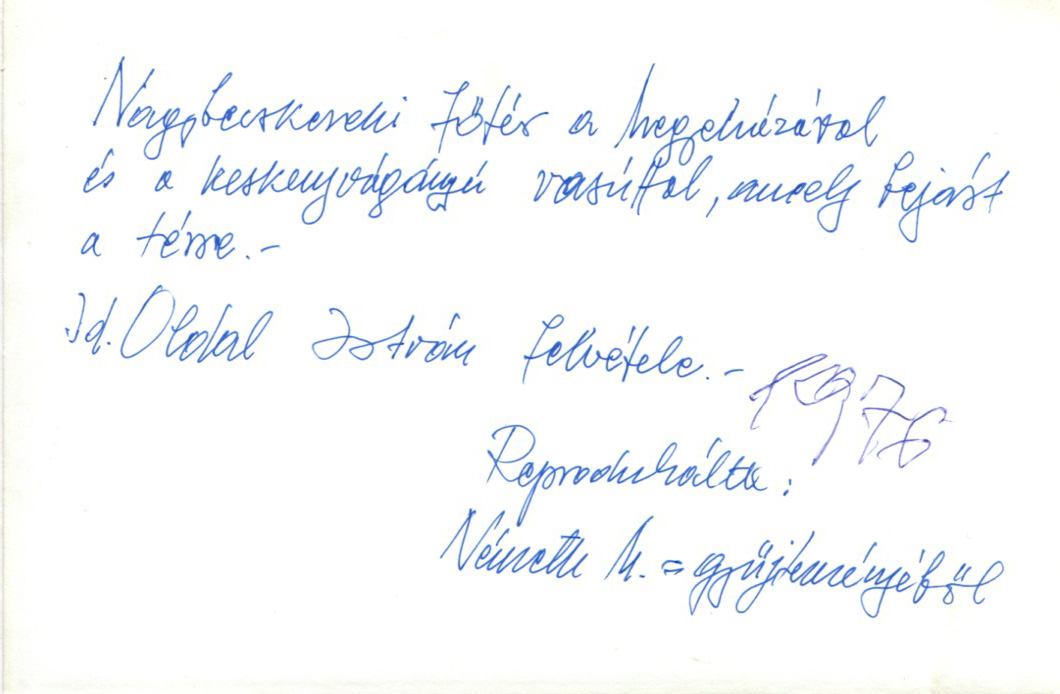 Nagybecskereki főtér a Megyeházával
és a keskenyvágányú vasúttal, amely bejárt
a térre.-
Id. Oldal István felvétele.-
1976
Reprodukálta:
Németh M. = gyűjteményéből